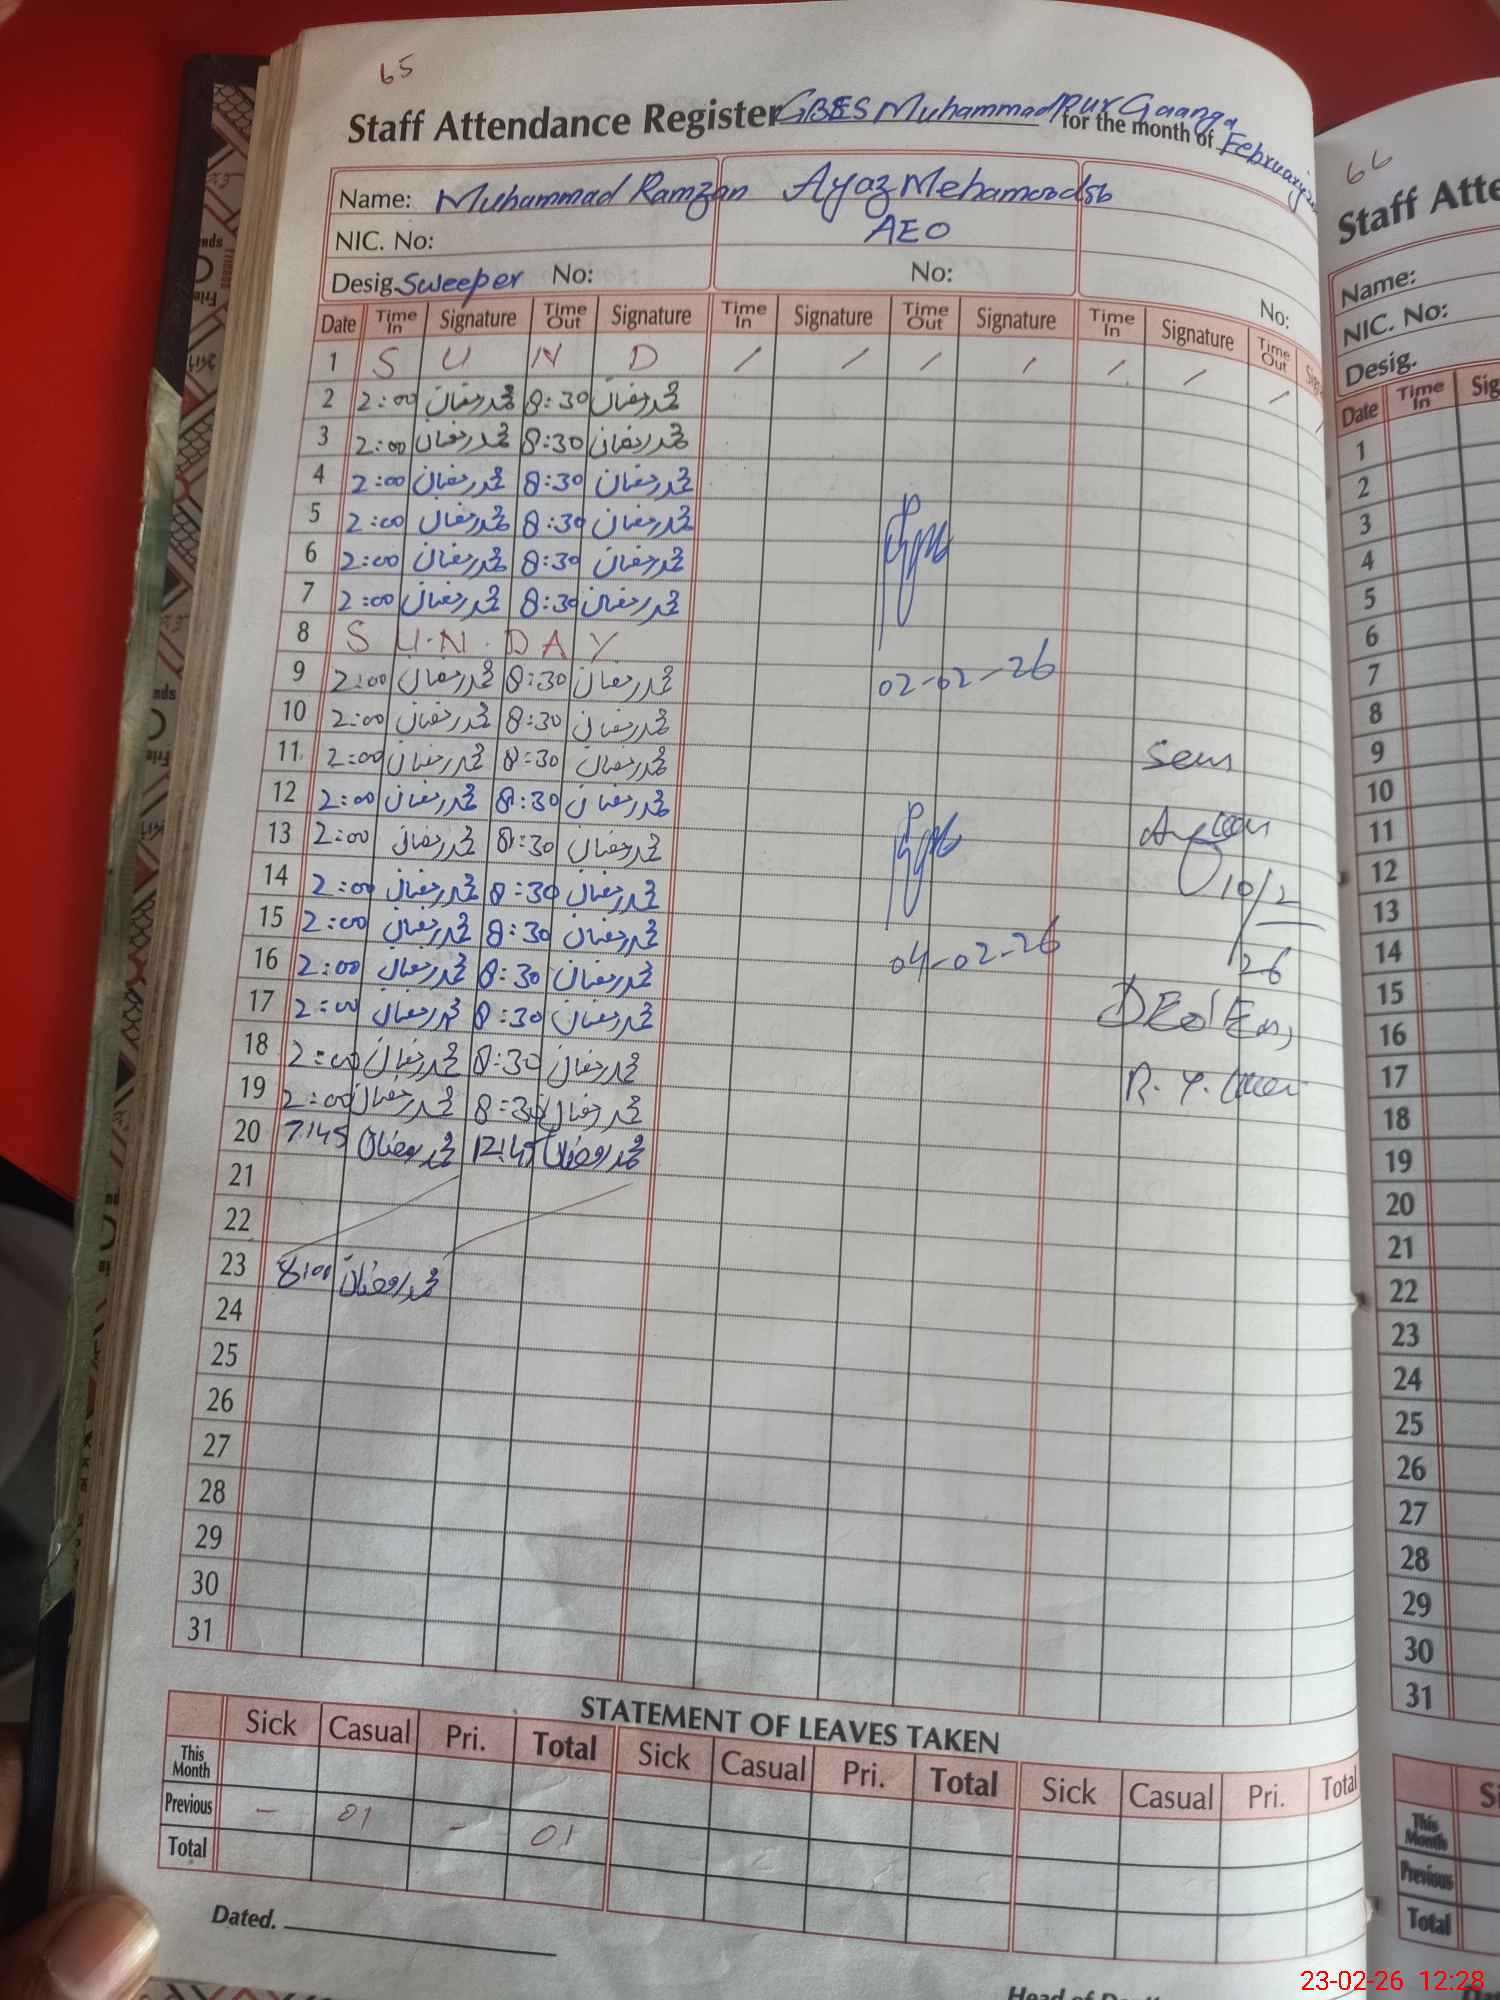 65
Staff Attendance Register GBES Muhammad Pur Gaanga for the month of February
Name: Muhammad Ramzan Ayaz Mehamood sb
NIC. No: AEO
Desig. Sweeper No: No: No:
Date Time In Signature Time Out Signature Time In Signature Time Out Signature Time In Signature Time Out
1 S U N D / / / / / / /
2 2:00 محمد رمضان 8:30 محمد رمضان
3 2:00 محمد رمضان 8:30 محمد رمضان
4 2:00 محمد رمضان 8:30 محمد رمضان
5 2:00 محمد رمضان 8:30 محمد رمضان
6 2:00 محمد رمضان 8:30 محمد رمضان
7 2:00 محمد رمضان 8:30 محمد رمضان
8 S U N D A Y
9 2:00 محمد رمضان 8:30 محمد رمضان 02-02-26
10 2:00 محمد رمضان 8:30 محمد رمضان
11 2:00 محمد رمضان 8:30 محمد رمضان Seen
12 2:00 محمد رمضان 8:30 محمد رمضان
13 2:00 محمد رمضان 8:30 محمد رمضان
14 2:00 محمد رمضان 8:30 محمد رمضان 10/2
15 2:00 محمد رمضان 8:30 محمد رمضان 04-02-26
16 2:00 محمد رمضان 8:30 محمد رمضان 26
17 2:00 محمد رمضان 8:30 محمد رمضان DEO
18 2:00 محمد رمضان 8:30 محمد رمضان R. Y.
19 2:00 محمد رمضان 8:30 محمد رمضان
20 7:45 محمد رمضان 12:45 محمد رمضان
21
22
23 8:00 محمد رمضان
24
25
26
27
28
29
30
31
STATEMENT OF LEAVES TAKEN
Sick Casual Pri. Total Sick Casual Pri. Total Sick Casual Pri. Total
This Month
Previous - 01 - 01
Total
Dated.
66
Staff
Name:
NIC. No:
Desig.
Date Time In
1
2
3
4
5
6
7
8
9
10
11
12
13
14
15
16
17
18
19
20
21
22
23
24
25
26
27
28
29
30
31
This Month
Previous
Total
23-02-26 12:28